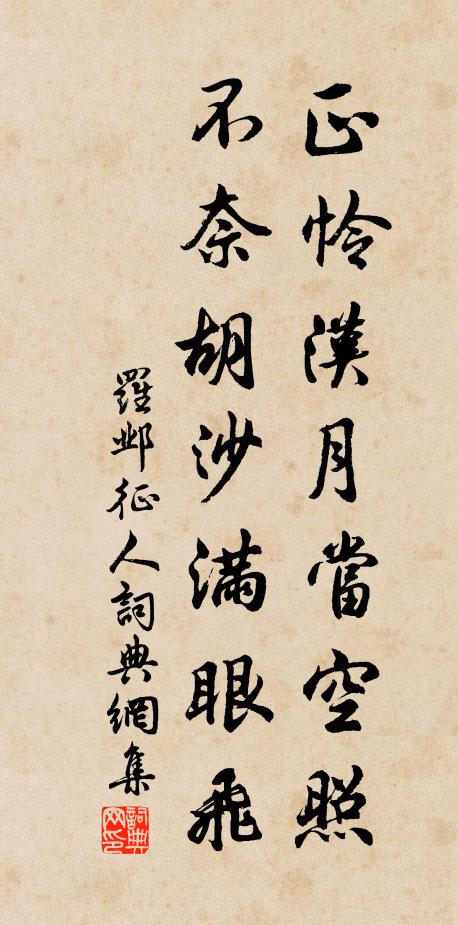 正怜漢月當空照
不奈胡沙滿眼飛
羅邺征人詞典網集
詞典网印